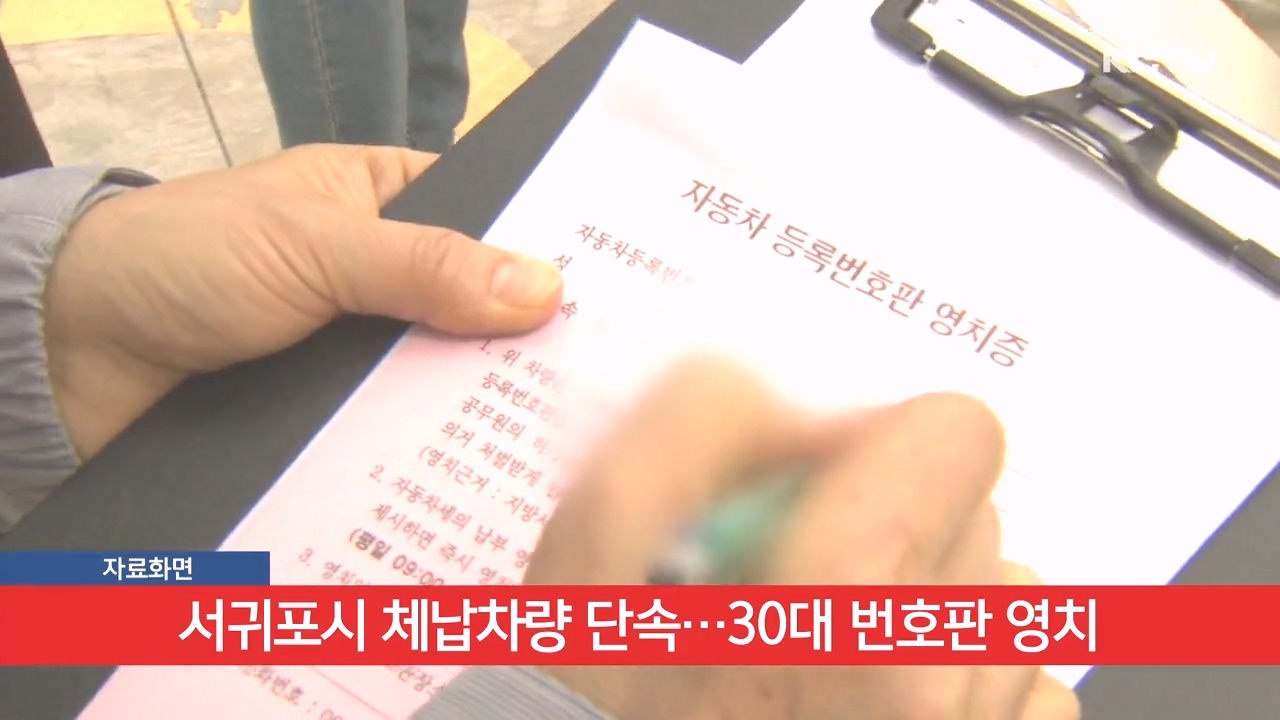 자동차 등록번호판 영치증
자동차등록번호
성
속
1. 위 차량
등록번호판
공무원의
의거 처벌받게
(영치근거 : 지방
2. 자동차세의 납부
제시하면 즉시
(평일 09:00
3.
자료화면
서귀포시 체납차량 단속…30대 번호판 영치